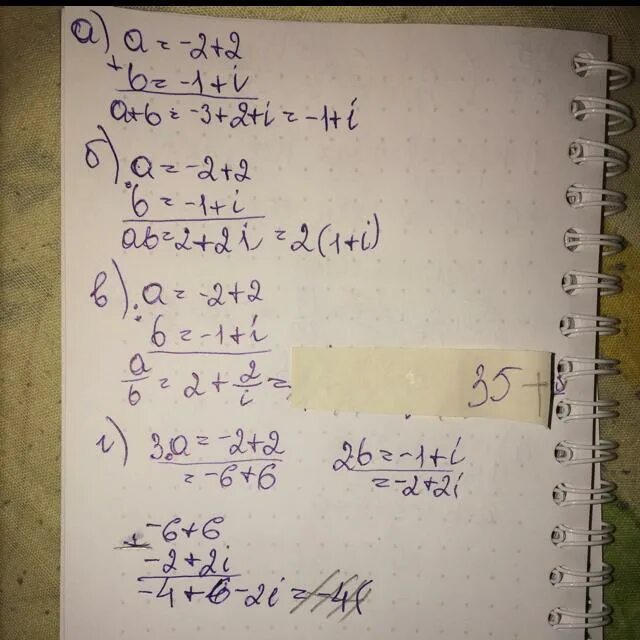 а) a = -2+2
+ b = -1+i
a+b = -3+2+i = -1+i
б) a = -2+2
· b = -1+i
ab = 2+2i = 2(1+i)
в) a = -2+2
: b = -1+i
a/b = 2 + 2/i =
35+
г) 3·a = -2+2
= -6+6
2b = -1+i
= -2+2i
-6+6
-2+2i
-4+6-2i = -4(